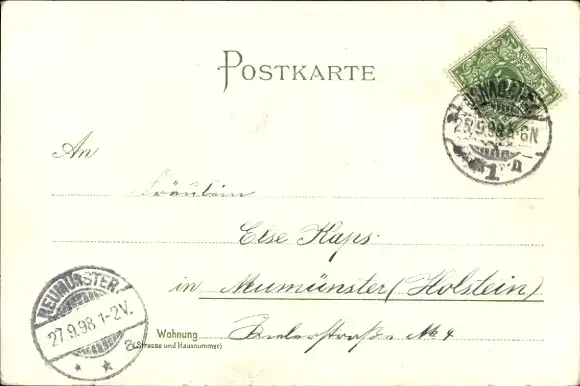 POSTKARTE
5
OSNABRÜCK
25.9.98 5-6N
1
An
Fräulein
Else Kaps.
in Neumünster (Holstein)
NEUMÜNSTER.
27.9.98 1-2V.
* *
Wohnung
(Strasse und Hausnummer)
No 4